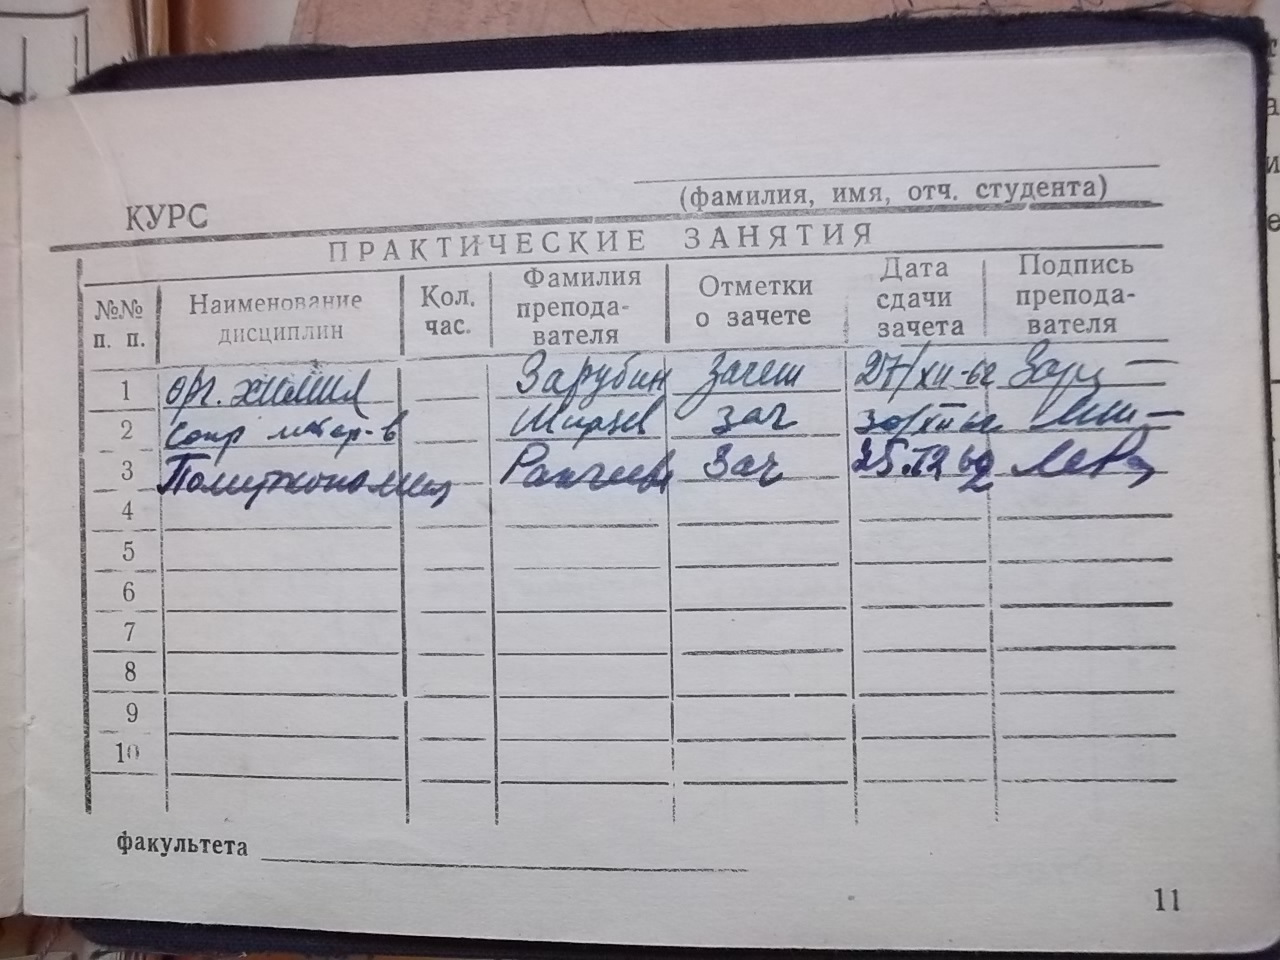 (фамилия, имя, отч. студента)
КУРС
ПРАКТИЧЕСКИЕ ЗАНЯТИЯ
№№ п. п. Наименование дисциплин Кол. час. Фамилия преподавателя Отметки о зачете Дата сдачи зачета Подпись преподавателя
1 орг. химия Зарубин Зачет 27/XII-62
2 Сопр матер-в зач 30/XII 62
3 Политэкономия Зач 25.XII 62
4
5
6
7
8
9
10
факультета
11